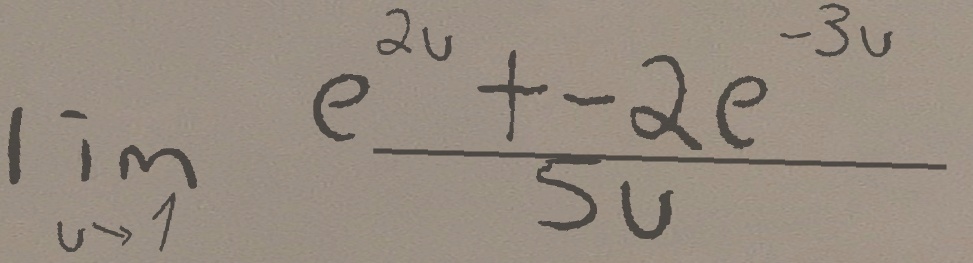 \lim_{u \to 1} \frac{e^{2u} + -2e^{-3u}}{5u}